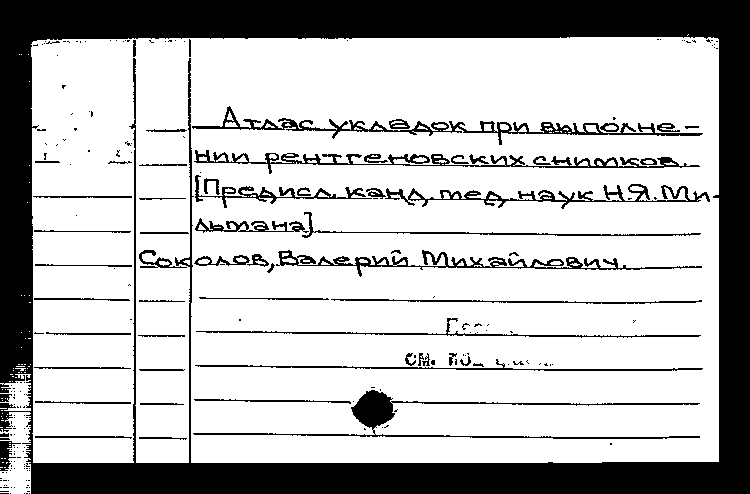 Атлас укладок при выполне-
нии рентгеновских снимков.
[Предисл. канд. мед. наук Н.Я. Ми-
льмана]
Соколов, Валерий Михайлович.
см. под